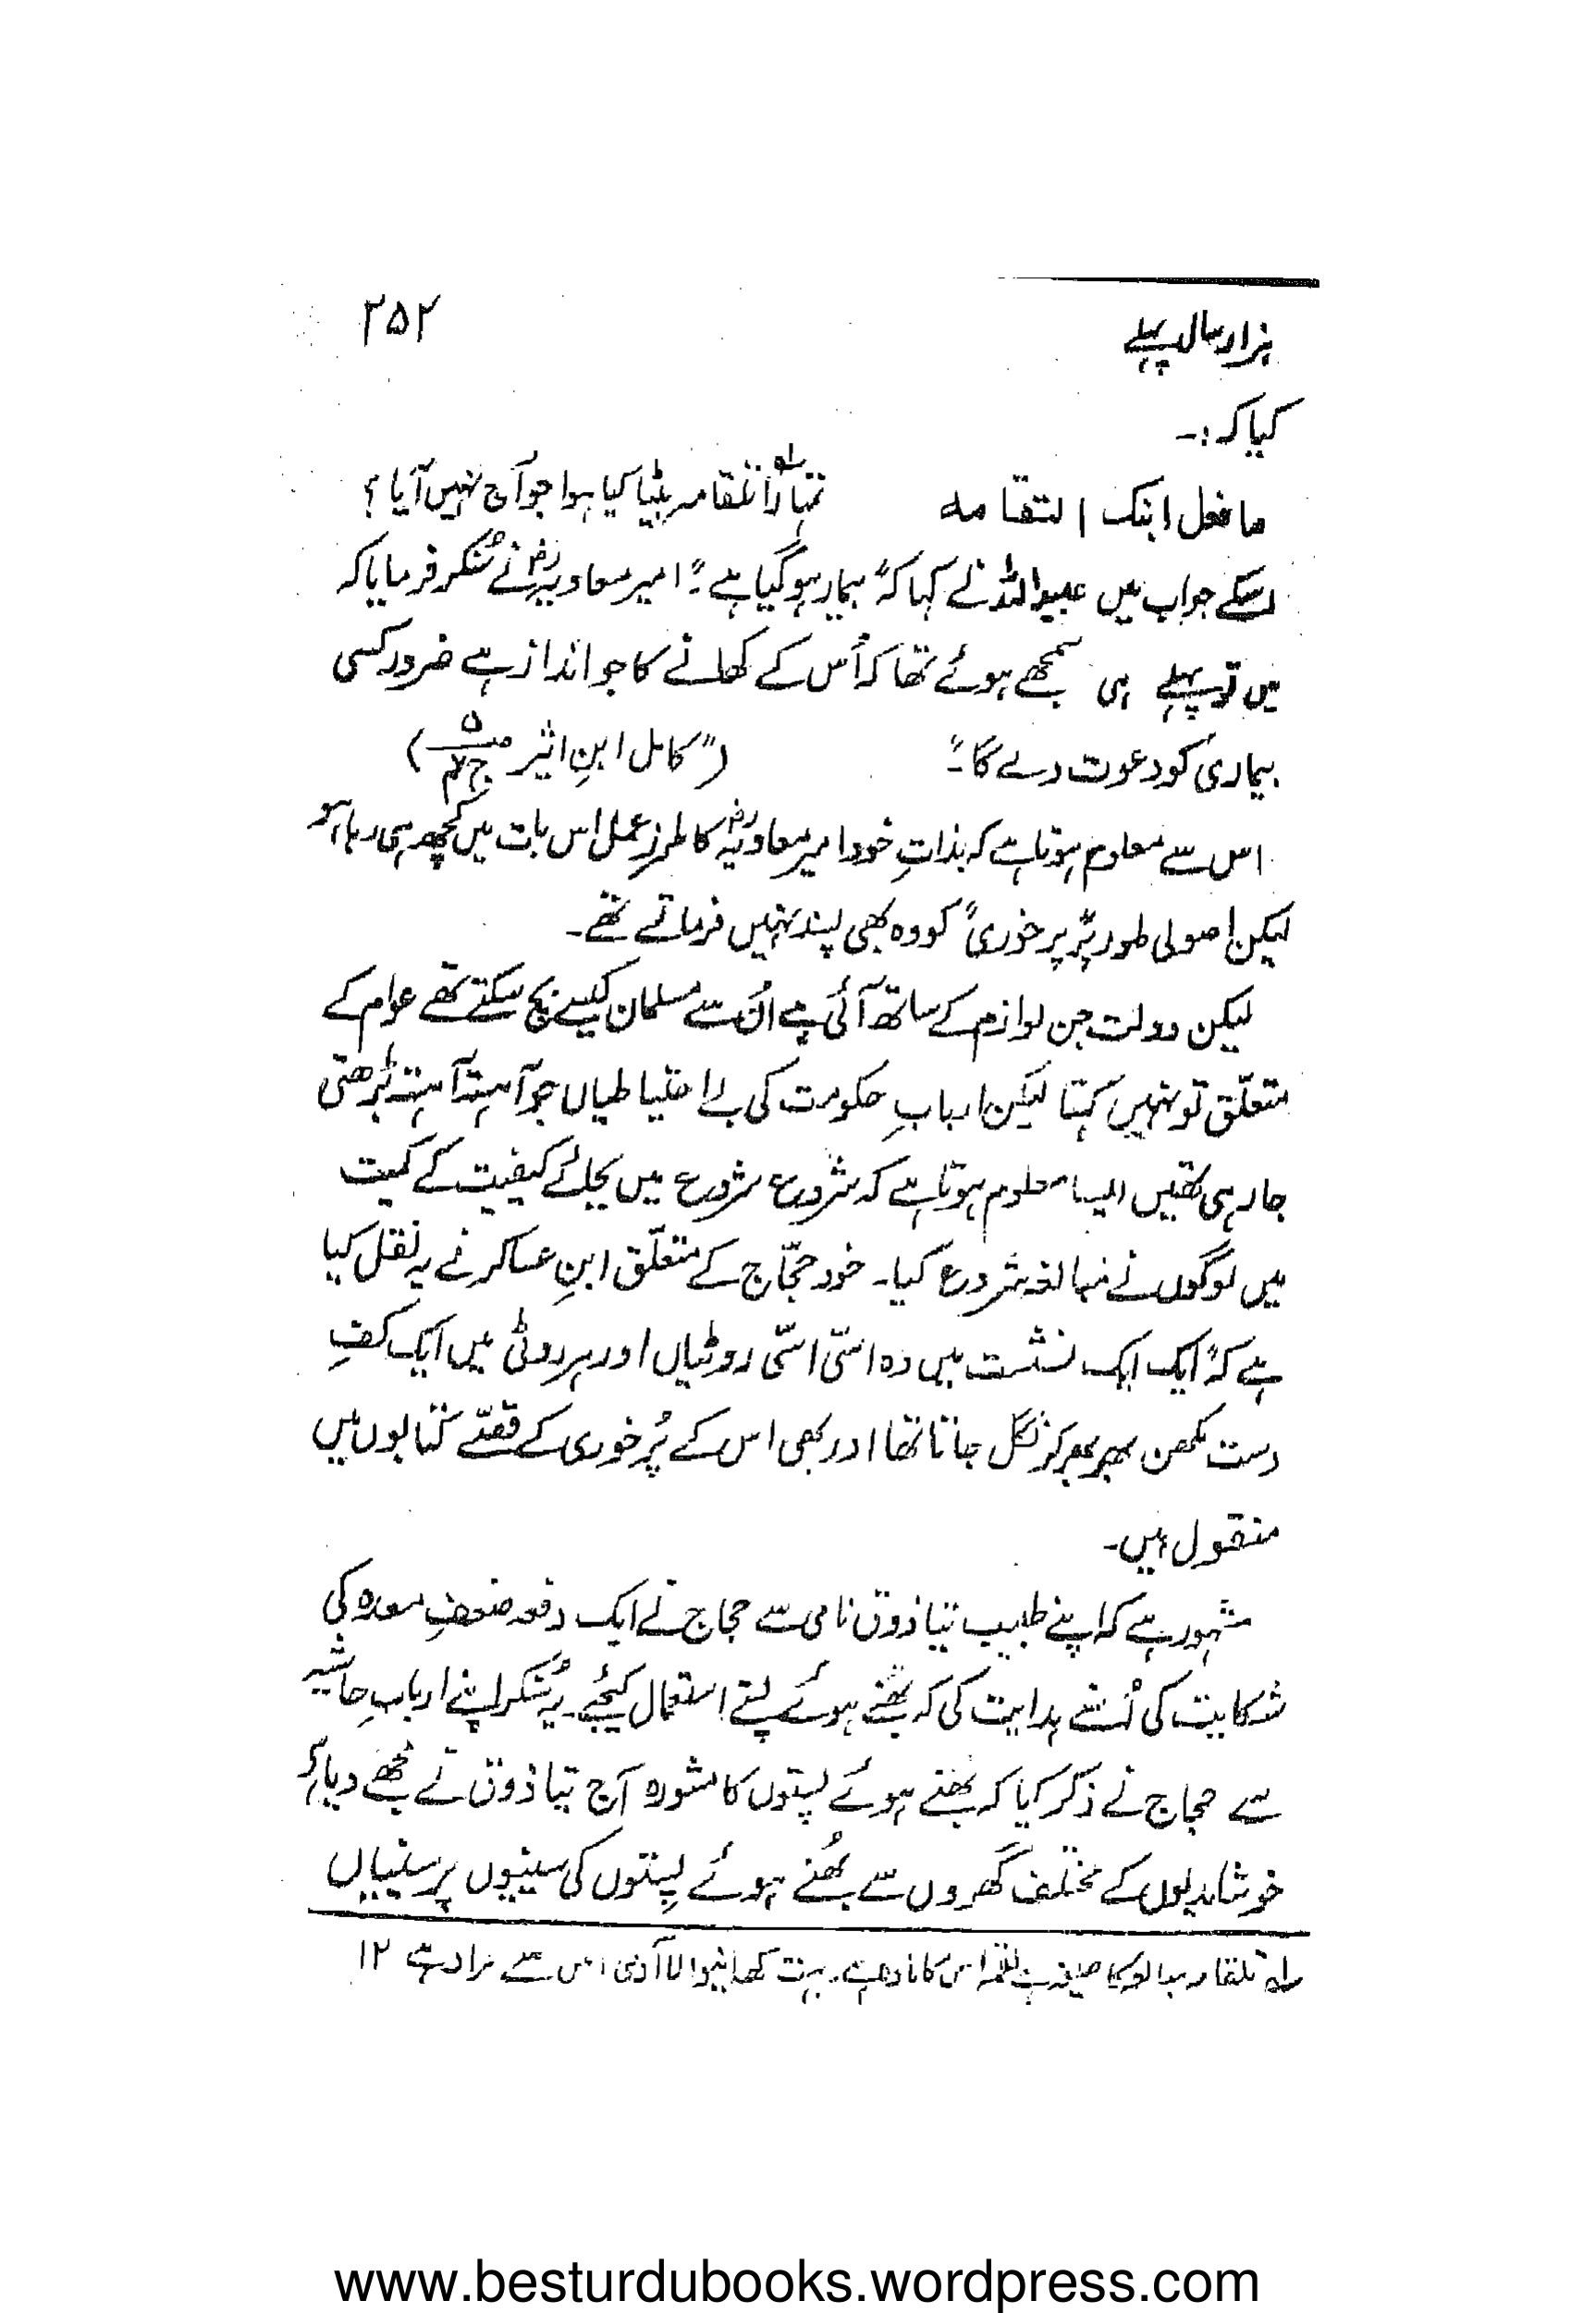 ہزار سال پہلے
۲۵۲
کیا کہ:۔
ما فعل ابنک التقامہ
تمہارا تلقامہ بیٹا کیا ہوا جو آج نہیں آیا ؟
اسکے جواب میں عبید اللہ نے کہا کہ "بیمار ہو گیا ہے"۔ امیر معاویہؓ نے سُنکر فرمایا کہ
میں تو پہلے ہی سمجھے ہوئے تھا کہ اُس کے کھانے کا جو انداز ہے ضرور کسی
بیماری کو دعوت دے گا"۔
("کامل ابنِ اثیر صـ۵ ج۴)
اس سے معلوم ہوتا ہے کہ بذاتِ خود امیر معاویہؓ کا طرزِ عمل اس بات میں کچھ ہی رہا ہو
لیکن اصولی طور پر "پر خوری" کو وہ بھی پسند نہیں فرماتے تھے۔
لیکن دولت جن لوازم کے ساتھ آئی ہے اُن سے مسلمان کیسے بچ سکتے تھے عوام کے
متعلّق تو نہیں کہتا لیکن اربابِ حکومت کی بے احتیاطیاں جو آہستہ آہستہ بڑھتی
جا رہی تھیں ایسا معلوم ہوتا ہے کہ شروع شروع میں بجائے کیفیت کے کمیت
میں لوگوں نے مبالغہ شروع کیا۔ خود حجّاج کے متعلّق ابنِ عساکر نے یہ نقل کیا
ہے کہ "ایک ایک نشست میں وہ اسّی اسّی روٹیاں اور ہر روٹی میں ایک کفِ
دست مکھن بھر بھر کر نگل جاتا تھا اور بھی اس کے پُر خوری کے قصّے کتابوں میں
منقول ہیں۔
مشہور ہے کہ اپنے طبیب تیاذوق نامی سے حجاج نے ایک دفعہ ضعفِ معدہ کی
شکایت کی اُسنے ہدایت کی کہ بھُنے ہوئے پستے استعمال کیجئے۔ یہ سُنکر اپنے اربابِ حاشیہ
سے حجاج نے ذکر کیا کہ بھنے ہوئے پستوں کا مشورہ آج تیاذوق نے مجھے دیا ہے
خوشامدیوں کے مختلف گھروں سے بھُنے ہوئے پِستوں کی سینیوں پر سینیاں
لہ تلقامہ مبالغہ کا صیغہ ہے لقمہ اس کا مادہ ہے۔ بہت کھانیوالا آدمی اس سے مراد ہے ۱۲
www.besturdubooks.wordpress.com